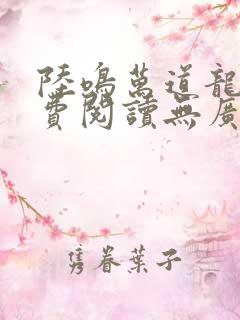 陸鳴萬道龍
費閱讀無廣
隽眷葉子